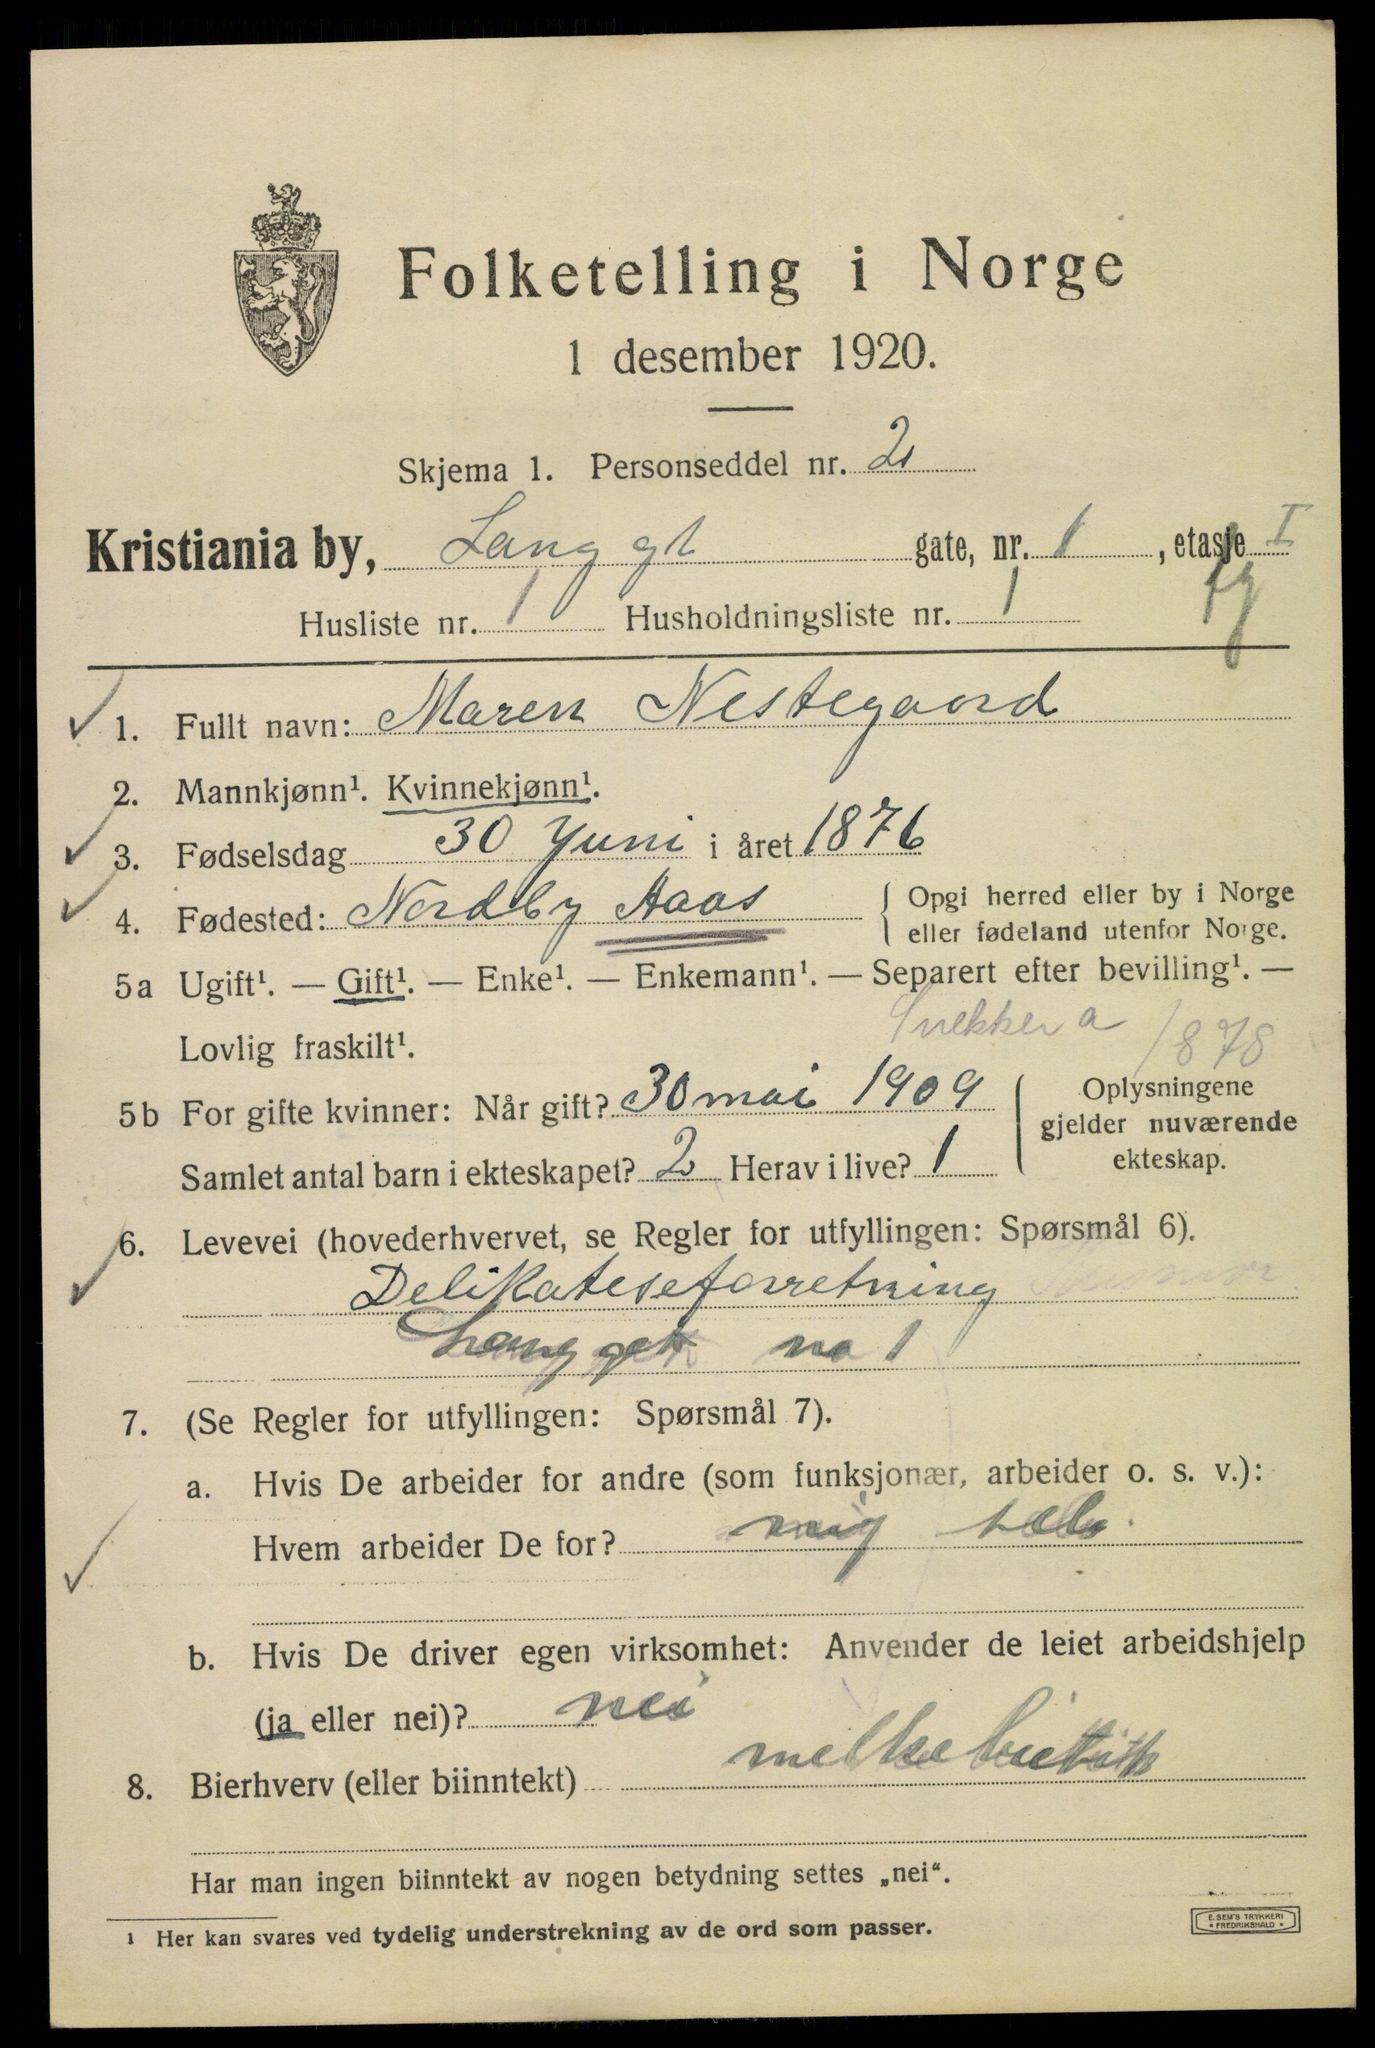 Folketelling i Norge
1 desember 1920.
Skjema 1. Personseddel nr. 2
Kristiania by, Lang gt gate, nr. 1, etasje I
Husliste nr. 1 Husholdningsliste nr. 1
1. Fullt navn: Maren Nestegaard
2. Mannkjønn¹. Kvinnekjønn¹.
3. Fødselsdag 30 Juni i året 1876
4. Fødested: Nordby Aaas { Opgi herred eller by i Norge
eller fødeland utenfor Norge.
5a Ugift¹. — Gift¹. — Enke¹. — Enkemann¹. — Separert efter bevilling¹. —
Lovlig fraskilt¹. Snekker a 1878
5b For gifte kvinner: Når gift? 30 mai 1909
Samlet antal barn i ekteskapet? 2 Herav i live? 1
Oplysningene
gjelder nuværende
ekteskap.
6. Levevei (hovederhvervet, se Regler for utfyllingen: Spørsmål 6).
Delikateseforretning
Lang gt no 1
7. (Se Regler for utfyllingen: Spørsmål 7).
a. Hvis De arbeider for andre (som funksjonær, arbeider o. s. v.):
Hvem arbeider De for? mig
b. Hvis De driver egen virksomhet: Anvender de leiet arbeidshjelp
(ja eller nei)? nei
8. Bierhverv (eller biinntekt)
Har man ingen biinntekt av nogen betydning settes „nei“.
¹ Her kan svares ved tydelig understrekning av de ord som passer.
E. SEM'S TRYKKERI
• FREDRIKSHALD •